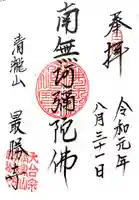 奉拝
令和元年
八月三十一日
南無阿彌陀佛
清瀧山
最勝寺
天台宗